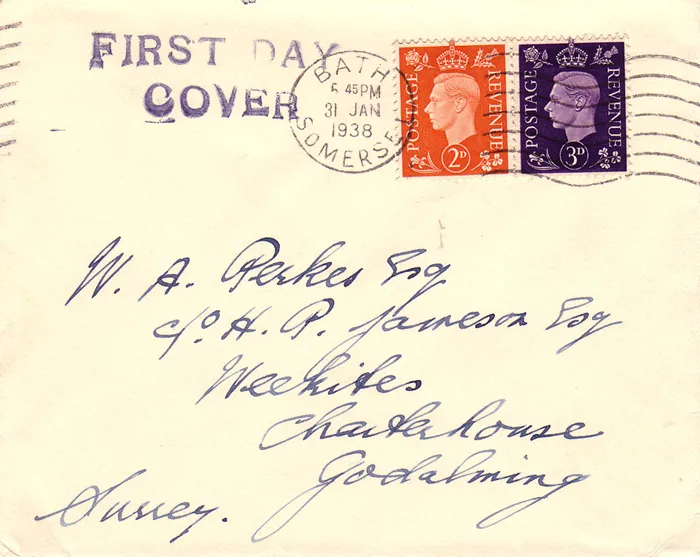 FIRST DAY
COVER
BATH
5 45PM
31 JAN
1938
SOMERSET
POSTAGE REVENUE
2D
POSTAGE REVENUE
3D
W. A. Perkes Esq
c/o H. P. Jameson Esq
Weekites
Charterhouse
Godalming
Surrey.